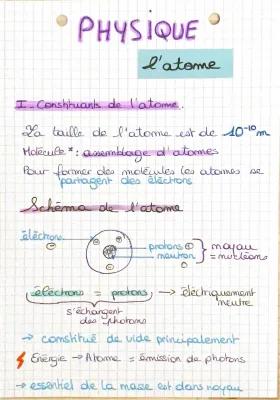 PHYSIQUE
l'atome
I - Constituants de l'atome.
La taille de l'atome est de 10⁻¹⁰ m
Molécule * : assemblage d'atomes
Pour former des molécules les atomes se
partagent des électrons
Schéma de l'atome
électrons
protons ⊕
neutron
} noyau
= nucléons
électrons = protons → électriquement
neutre
s'échangent
des photons
→ constitué de vide principalement
Énergie → Atome = émission de photons
→ essentiel de la masse est dans noyau